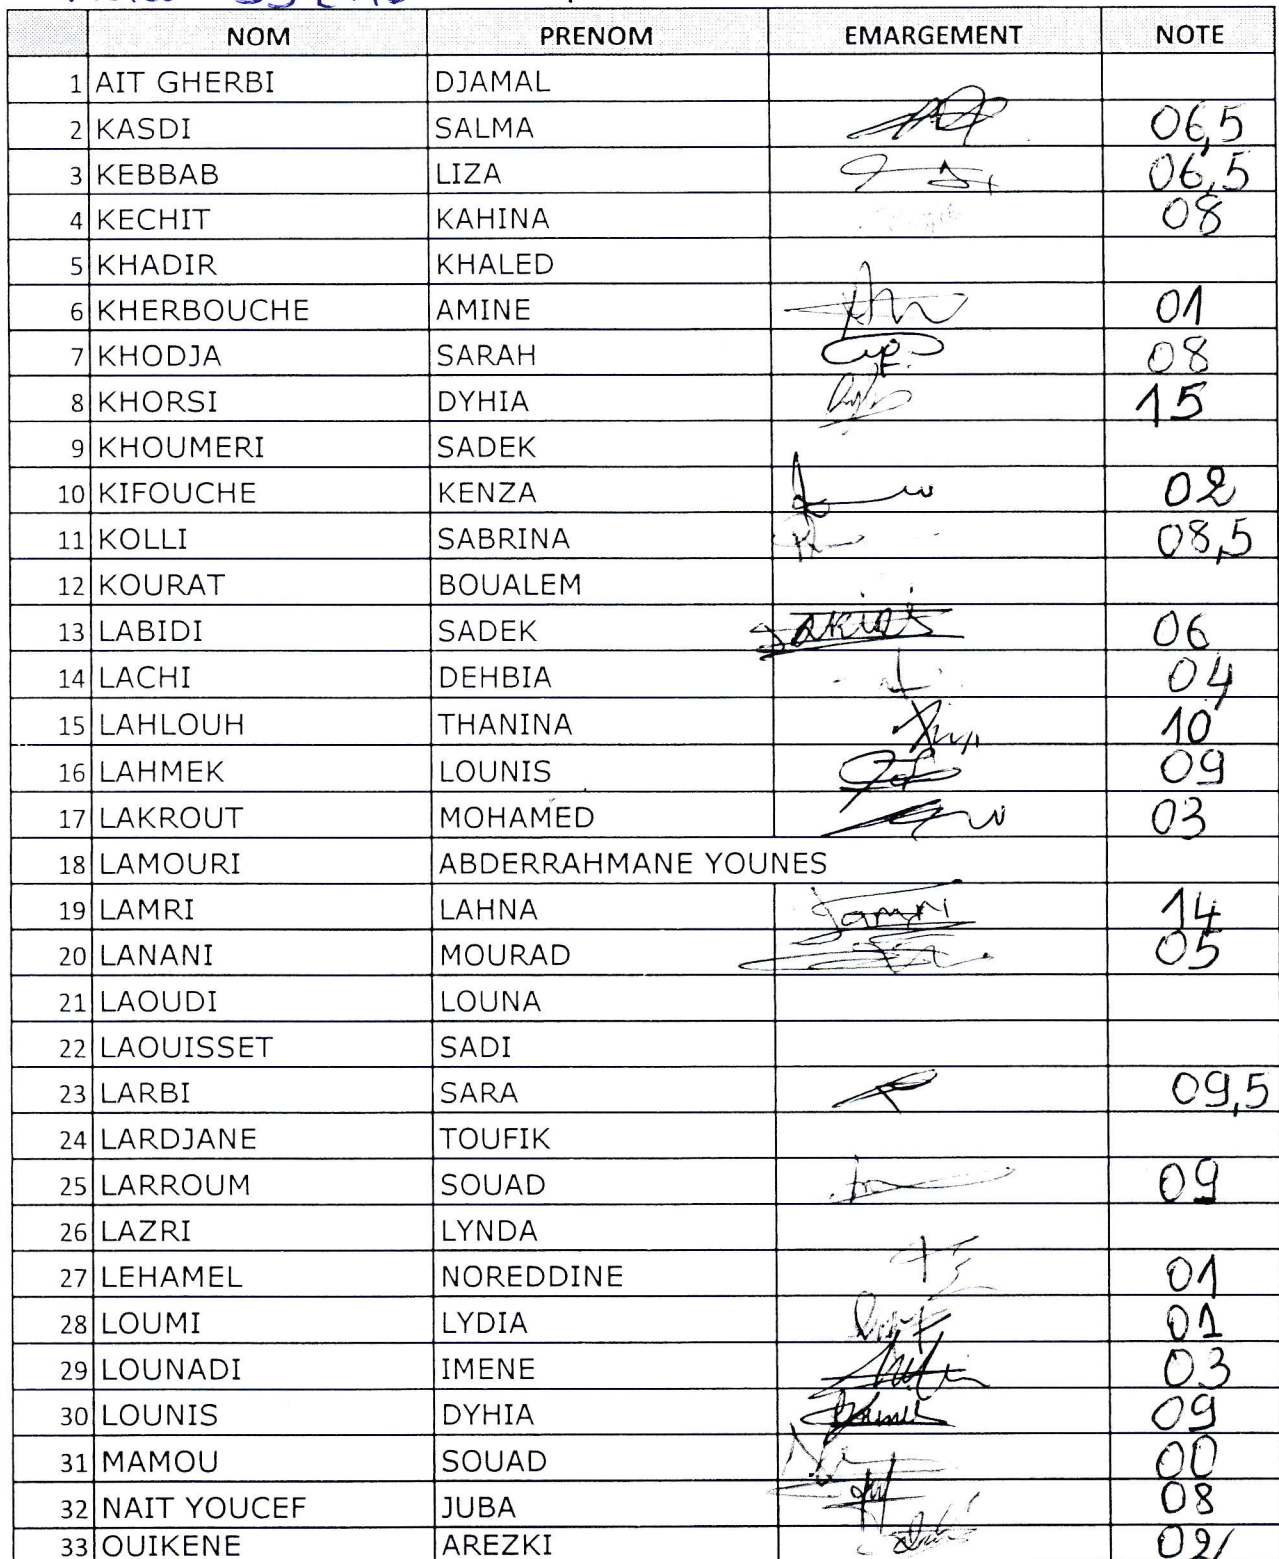 NOM PRENOM EMARGEMENT NOTE
1 AIT GHERBI DJAMAL
2 KASDI SALMA 06,5
3 KEBBAB LIZA 06,5
4 KECHIT KAHINA 08
5 KHADIR KHALED
6 KHERBOUCHE AMINE 01
7 KHODJA SARAH 08
8 KHORSI DYHIA 15
9 KHOUMERI SADEK
10 KIFOUCHE KENZA 02
11 KOLLI SABRINA 08,5
12 KOURAT BOUALEM
13 LABIDI SADEK 06
14 LACHI DEHBIA 04
15 LAHLOUH THANINA 10
16 LAHMEK LOUNIS 09
17 LAKROUT MOHAMED 03
18 LAMOURI ABDERRAHMANE YOUNES
19 LAMRI LAHNA Lamri 14
20 LANANI MOURAD 05
21 LAOUDI LOUNA
22 LAOUISSET SADI
23 LARBI SARA 09,5
24 LARDJANE TOUFIK
25 LARROUM SOUAD 09
26 LAZRI LYNDA
27 LEHAMEL NOREDDINE 01
28 LOUMI LYDIA 01
29 LOUNADI IMENE 03
30 LOUNIS DYHIA 09
31 MAMOU SOUAD 00
32 NAIT YOUCEF JUBA 08
33 OUIKENE AREZKI 02